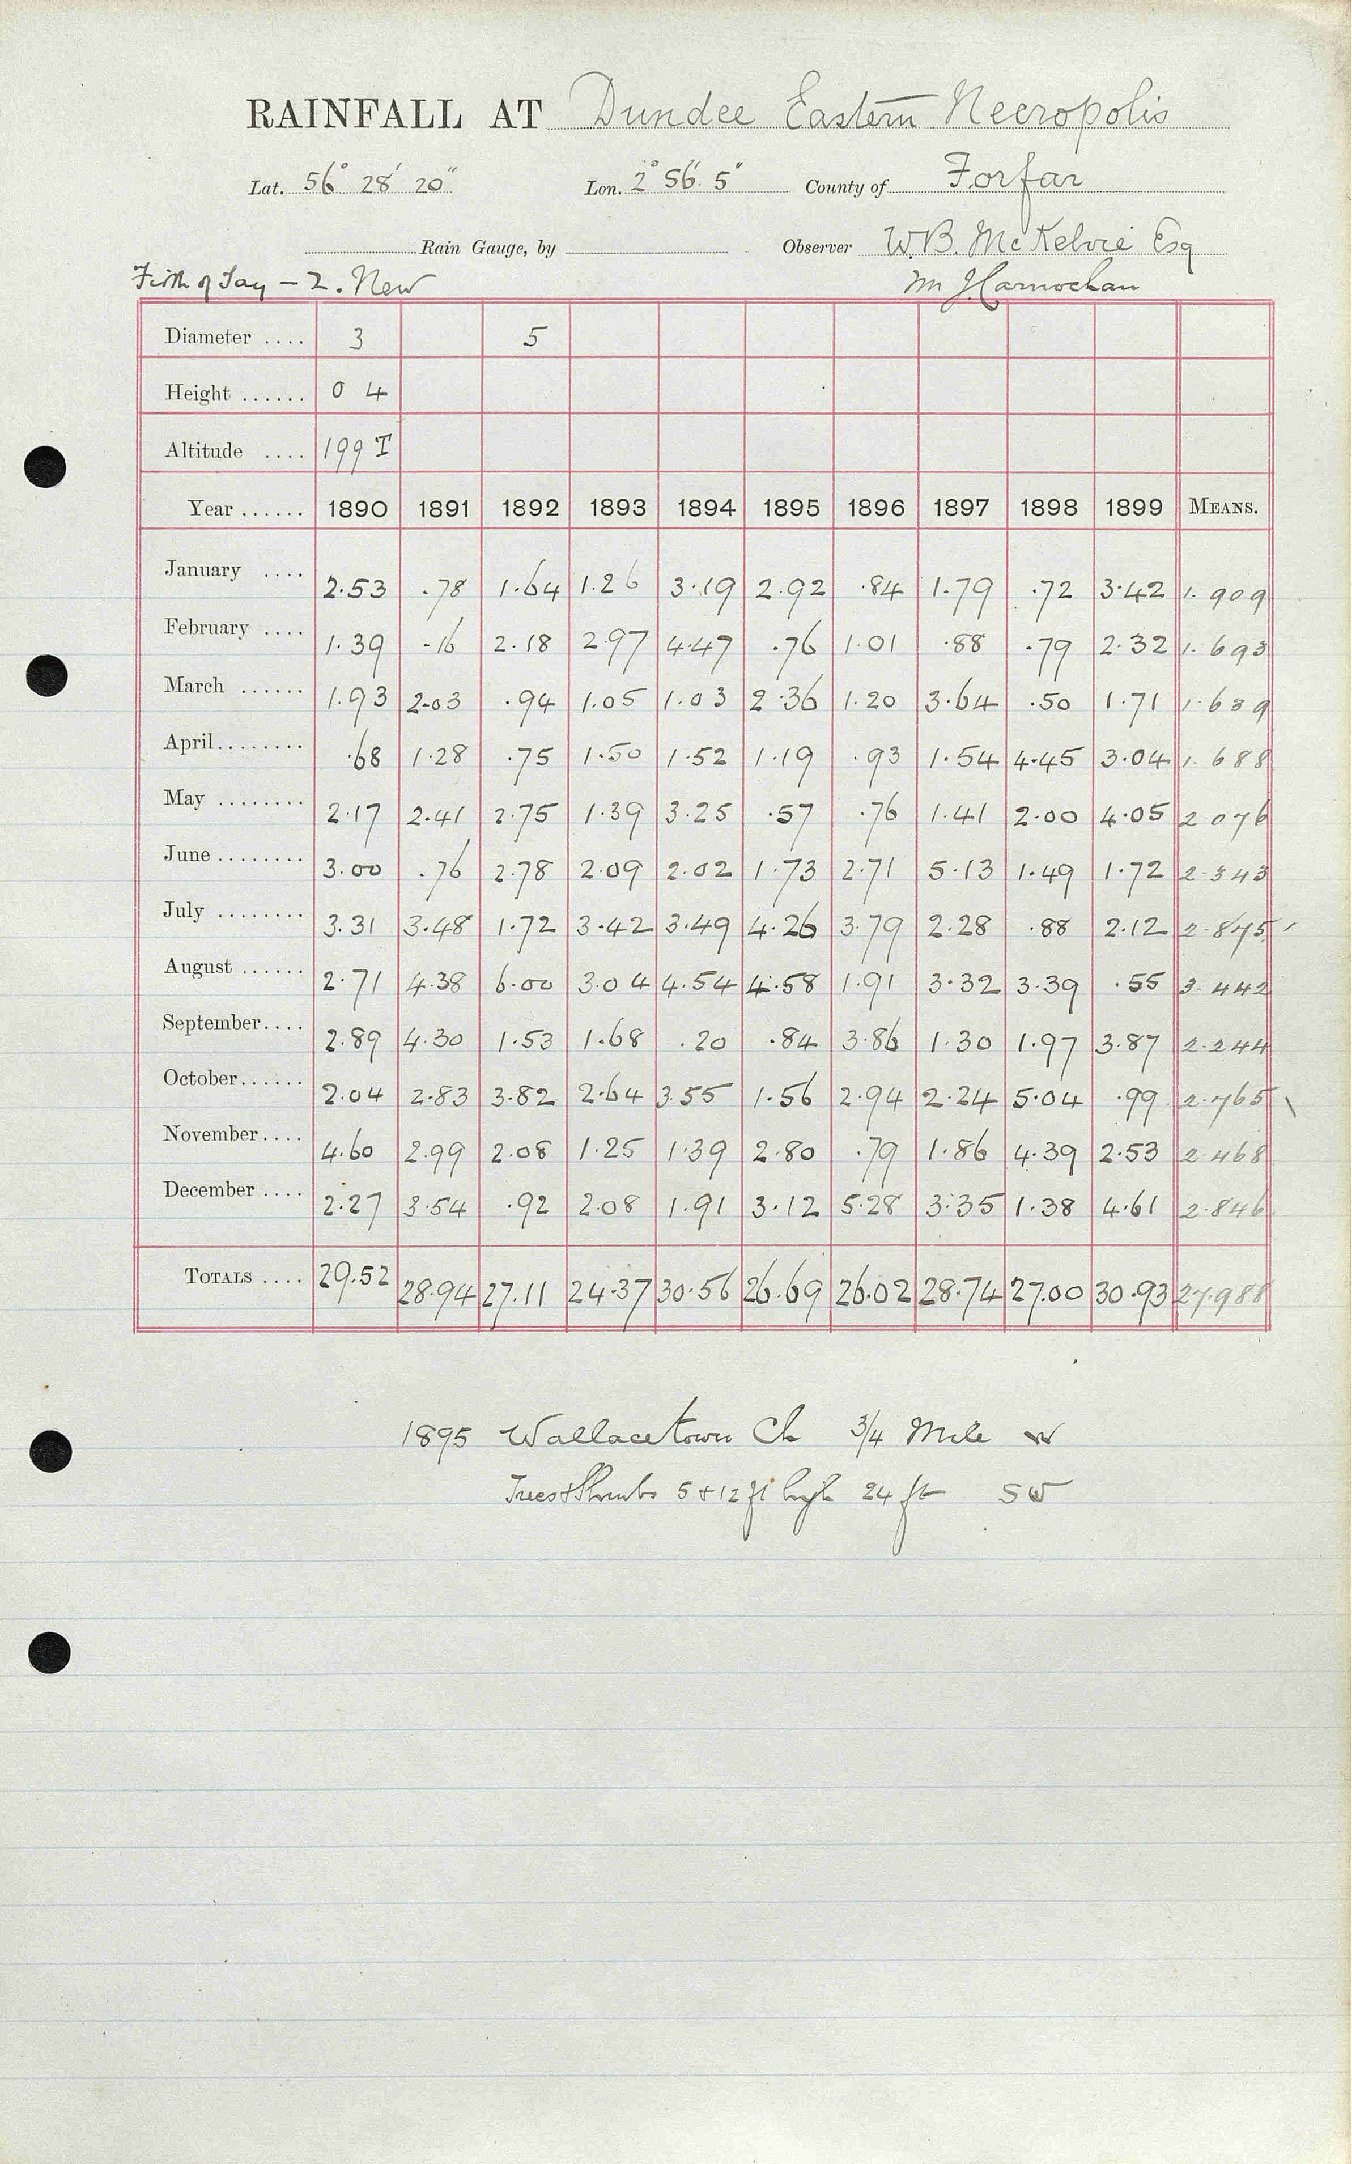 RAINFALL AT Dundee Eastern Necropolis
Lat. 56° 28' 20" Lon. 2° 56' 5" County of Forfar
Rain Gauge, by Observer W.B. McKelvie Esq
Firth of Tay - 2. New Mr J Carnochan
Diameter .... 3 5
Height ...... 0 4
Altitude .... 199 T
Year ...... 1890 1891 1892 1893 1894 1895 1896 1897 1898 1899 MEANS.
January .... 2.53 .78 1.64 1.26 3.19 2.92 .84 1.79 .72 3.42 1.909
February .... 1.39 .16 2.18 2.97 4.47 .76 1.01 .88 .79 2.32 1.693
March ...... 1.93 2.03 .94 1.05 1.03 2.36 1.20 3.64 .50 1.71 1.639
April........ .68 1.28 .75 1.50 1.52 1.19 .93 1.54 4.45 3.04 1.688
May ........ 2.17 2.41 2.75 1.39 3.25 .57 .76 1.41 2.00 4.05 2.076
June ........ 3.00 .76 2.78 2.09 2.02 1.73 2.71 5.13 1.49 1.72 2.343
July ........ 3.31 3.48 1.72 3.42 3.49 4.26 3.79 2.28 .88 2.12 2.875
August ...... 2.71 4.38 6.00 3.04 4.54 4.58 1.91 3.32 3.39 .55 3.442
September.... 2.89 4.30 1.53 1.68 .20 .84 3.86 1.30 1.97 3.87 2.244
October...... 2.04 2.83 3.82 2.64 3.55 1.56 2.94 2.24 5.04 .99 2.765
November.... 4.60 2.99 2.08 1.25 1.39 2.80 .79 1.86 4.39 2.53 2.468
December .... 2.27 3.54 .92 2.08 1.91 3.12 5.28 3.35 1.38 4.61 2.846
TOTALS .... 29.52 28.94 27.11 24.37 30.56 26.69 26.02 28.74 27.00 30.93 27.988
1895 Wallacetown Ch 3/4 Mile W
Trees & Shrubs 5 & 12 ft high 24 ft SW